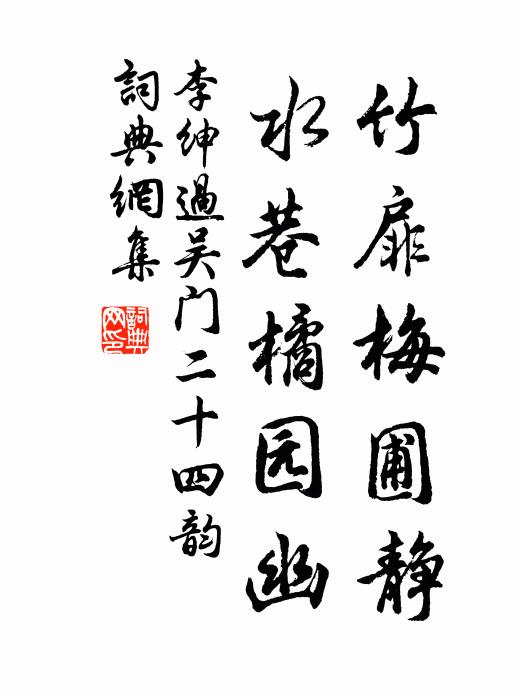 竹扉梅圃静
水巷橘园幽
李绅過吴门二十四韵
詞典網集
詞典网印